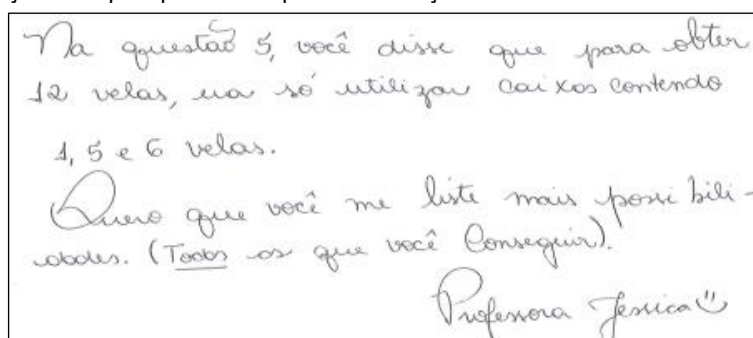 Na questão 5, você disse que para obter
12 velas, era só utilizar caixas contendo
1, 5 e 6 velas.
Quero que você me liste mais possibili-
dades. (Todas as que você conseguir).
Professora Jessica